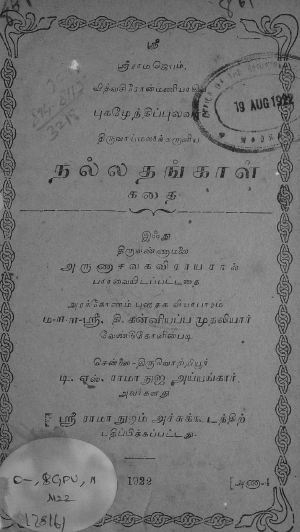 ஸ்ரீ
ஸ்ரீராமஜெயம்.
வித்வசிரோன்மணியாகிய
புகழேந்திப்புலவர்
திருவாய்மலர்ந்தருளிய
நல்லதங்காள்
கதை
இஃது
திருவண்ணாமலை
அருணாசலகவிராயரால்
பார்வையிடப்பட்டதை
அரக்கோணம் புத்தக வியாபாரம்
ம-ள-ள-ஸ்ரீ, தி. கன்னியப்ப முதலியார்
வேண்டுகோளின்படி
சென்னை-திருவொற்றியூர்
டி. எஸ். ராமாநுஜ அய்யங்கார்
அவர்களது
ஸ்ரீ ராமாநுஜம் அச்சுக்கூடத்திற்
பதிப்பிக்கப்பட்டது.
1922
19 AUG 1922
M22